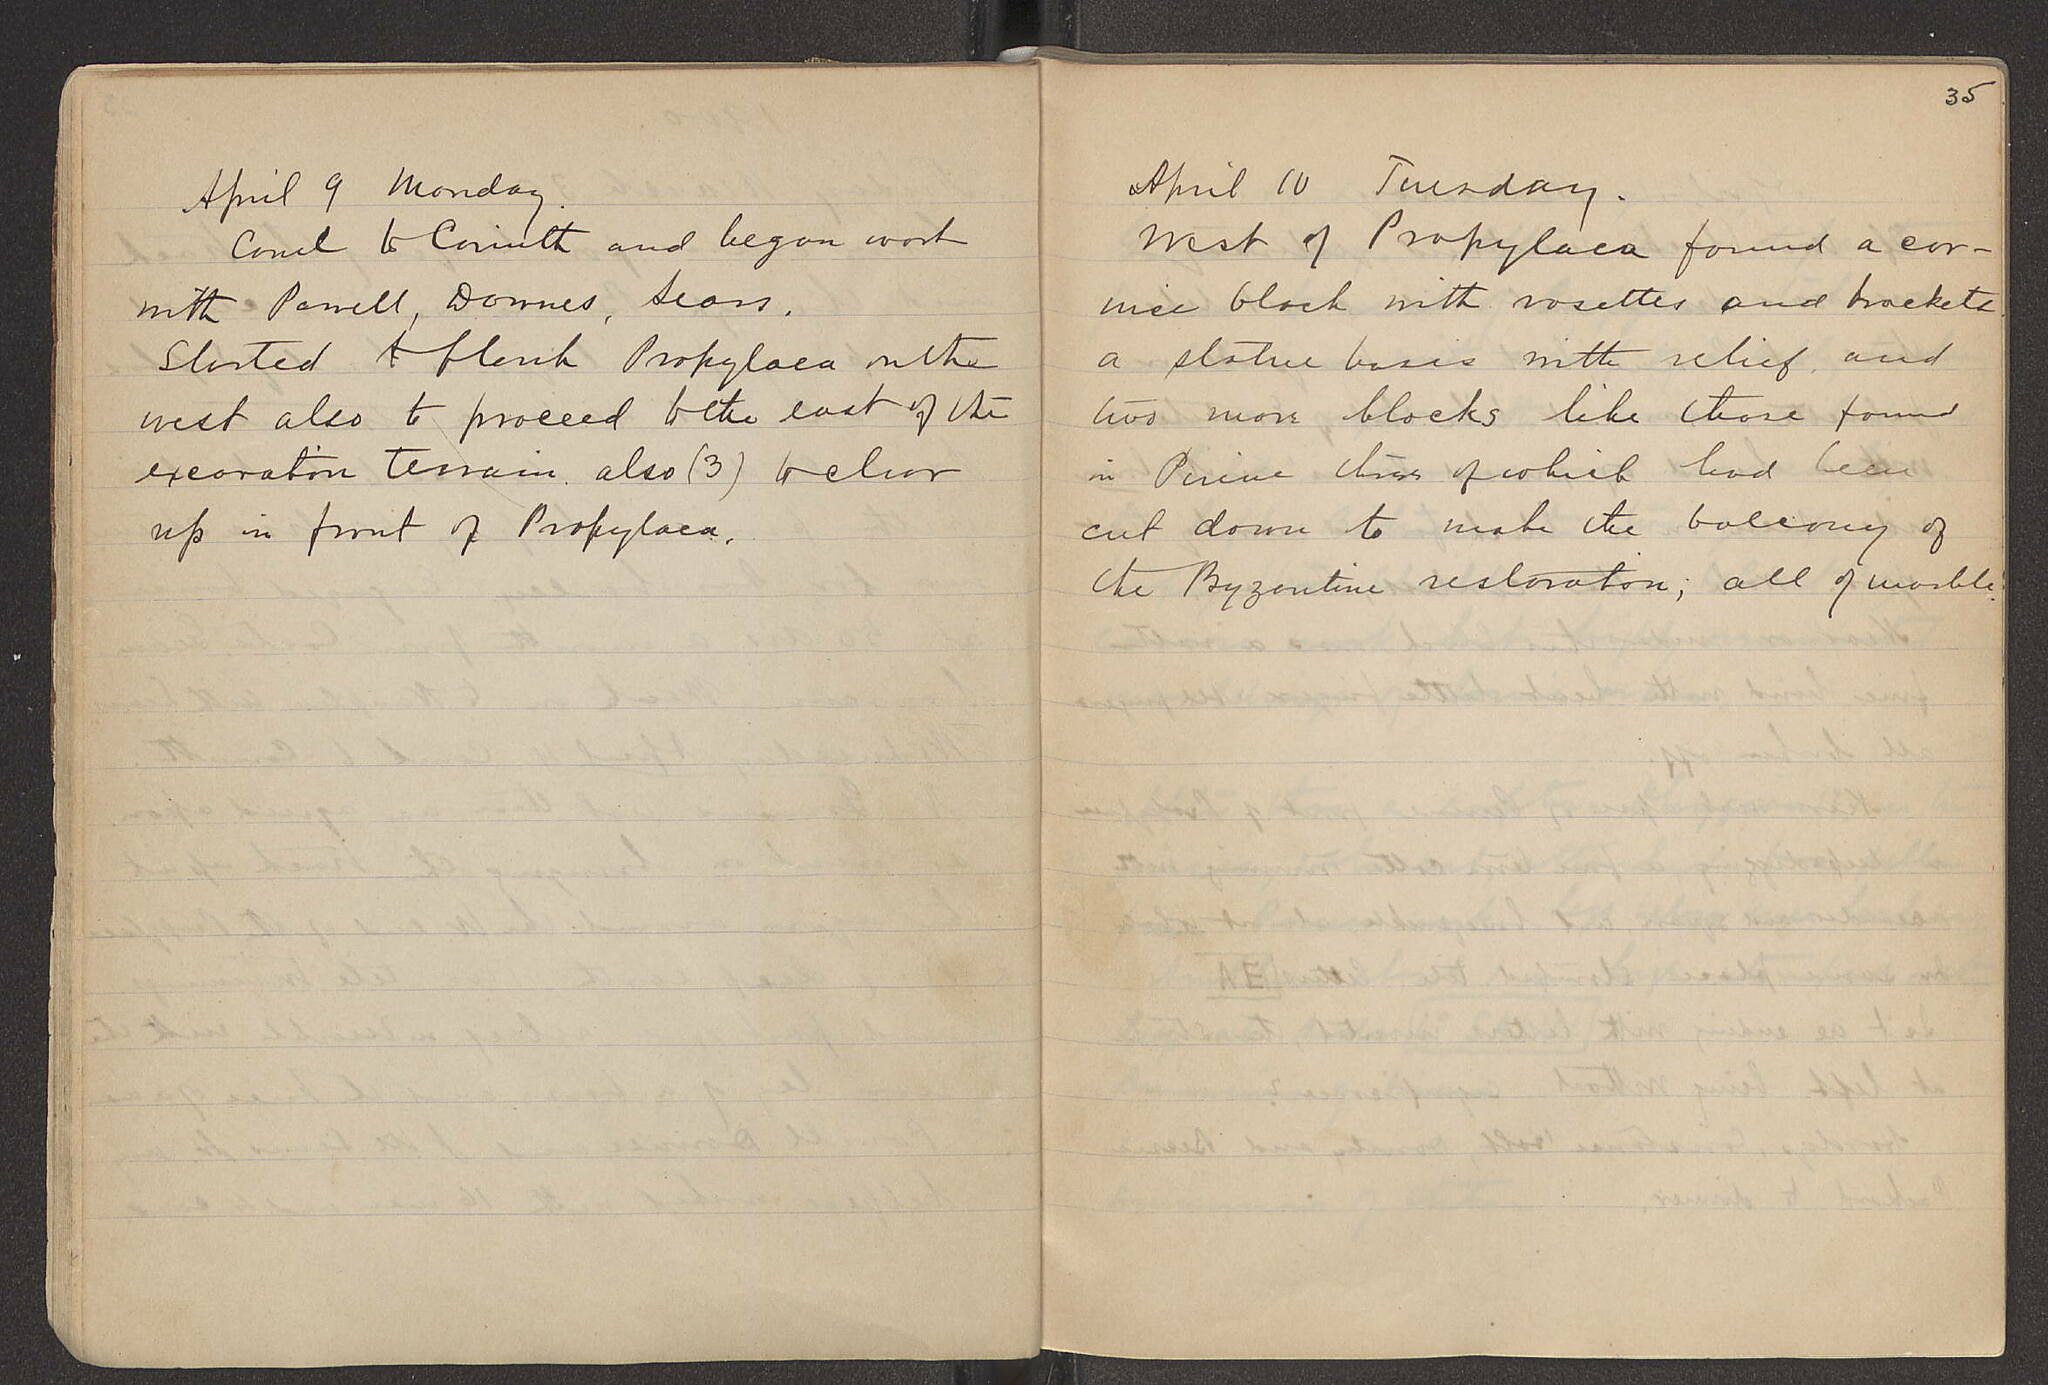 April 9 Monday.
Came to Corinth and began work
with Powell, Downes, Sears.
Started to flank Propylaea on the
west also to proceed to the east of the
excavation terrain. also (3) to clear
up in front of Propylaea.
35
April 10 Tuesday.
West of Propylaea found a cor-
nice block with rosettes and brackets
a statue basis with relief, and
two more blocks like those found
in Pirene three of which had been
cut down to make the balcony of
the Byzantine restoration; all of marble.